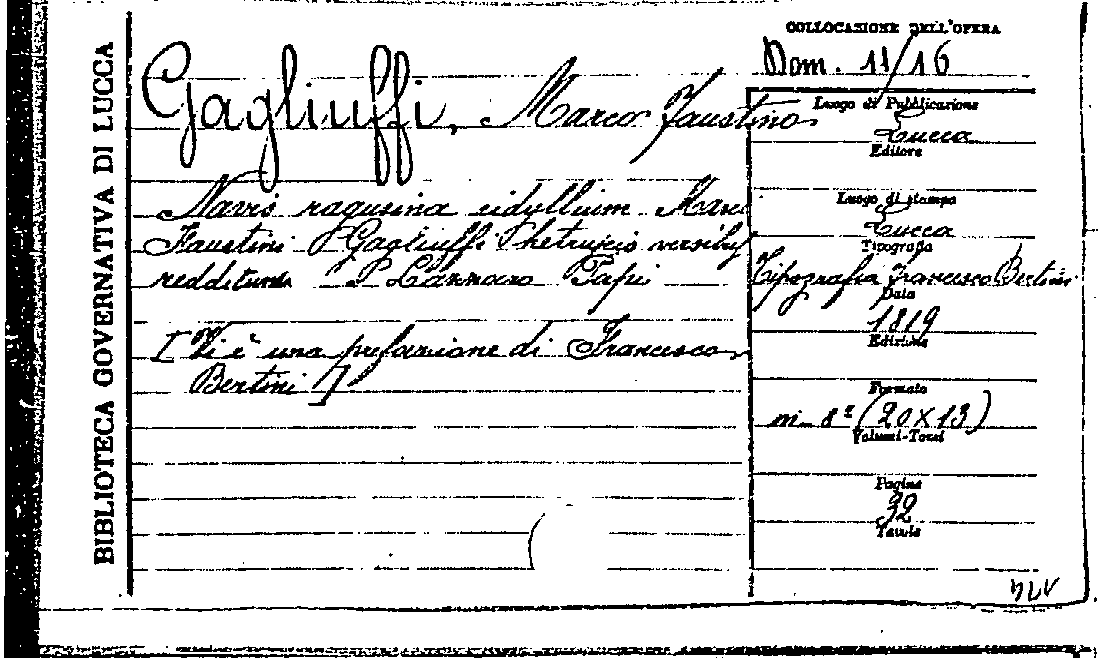 BIBLIOTECA GOVERNATIVA DI LUCCA
Gagliuffi, Marco Faustino
Navis ragusina eidyllium Marci
Faustini Gagliuffi hetruscis versibus
redditum P Lazzaro Papi
[Vi è una prefazione di Francesco
Bertini]
COLLOCAZIONE DELL'OPERA
Dom. 11/16
Luogo di Pubblicazione
Lucca
Editore
Luogo di stampa
Lucca
Tipografia
Tipografia Francesco Bertini
Data
1819
Edizione
Formato
in-8º (20×13)
Volumi-Tomi
Pagine
32
Tavole